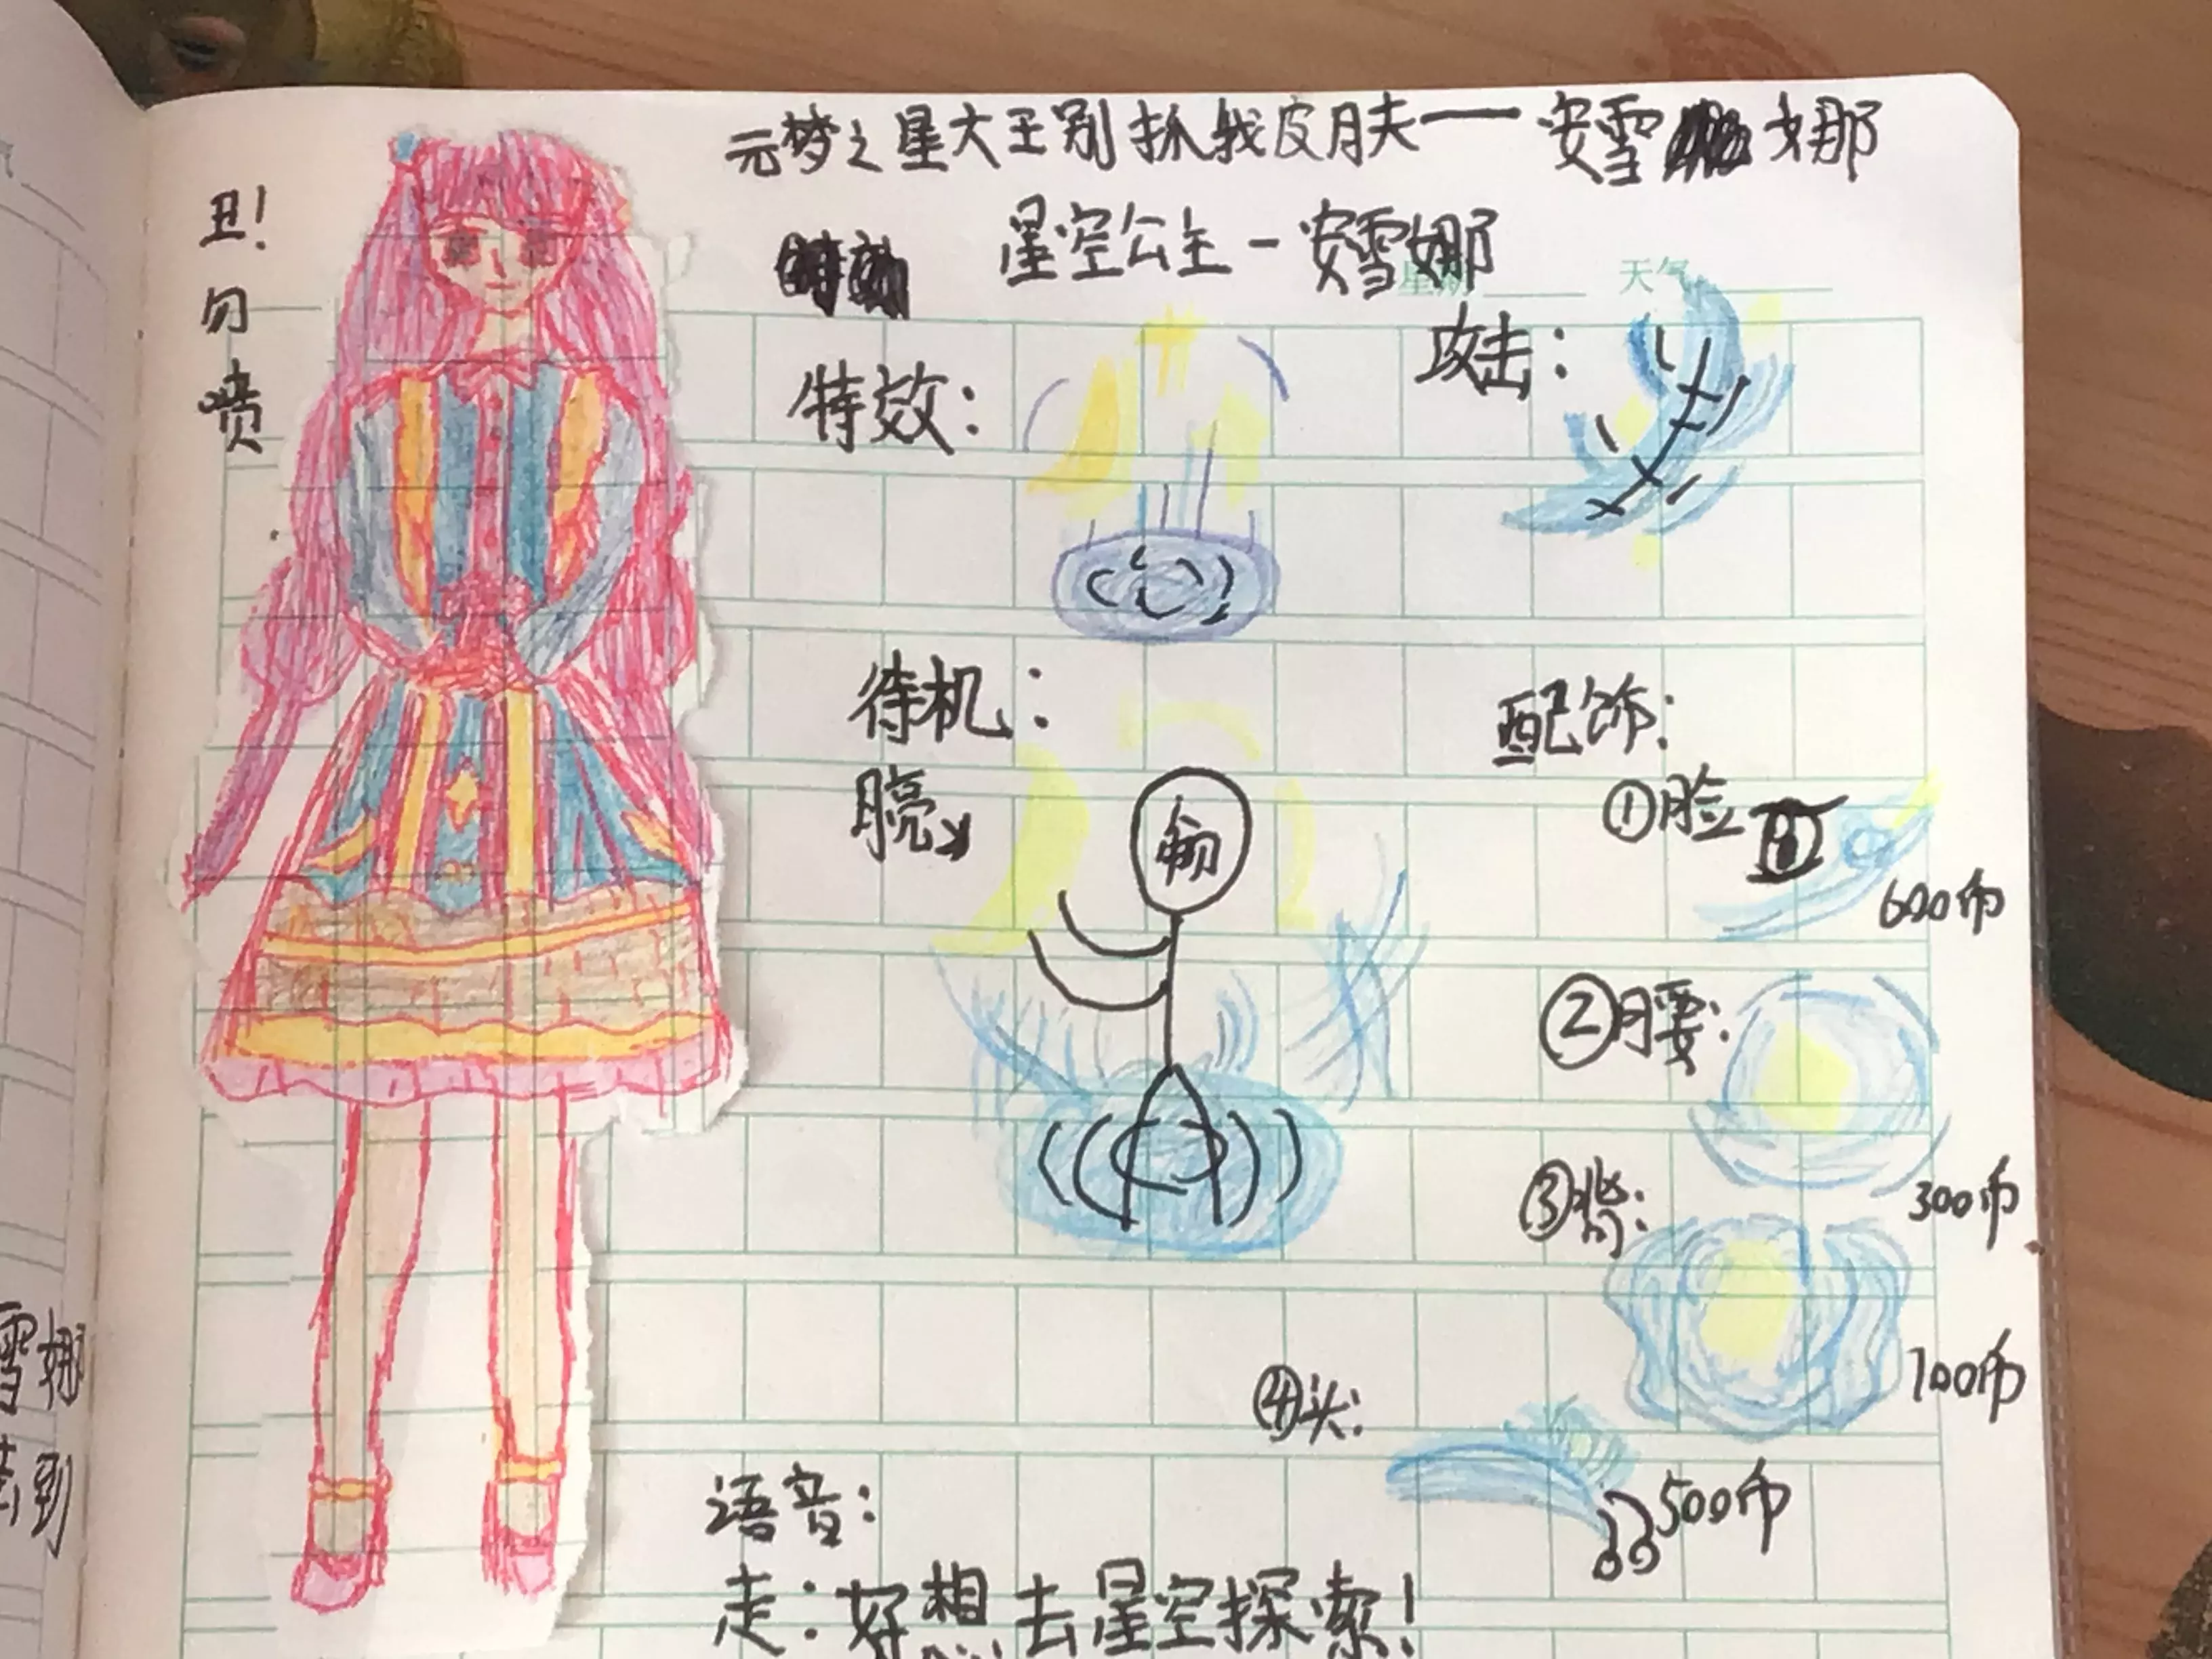 元梦之星大王别抓我皮肤——安雪娜
星空公主-安雪娜
丑!勿喷
星期 天气
特效:
攻击:
待机:
配饰:
①脸
600币
②腰:
300币
③背:
100币
④头:
500币
语音:
走:好想去星空探索!
雪娜
去到